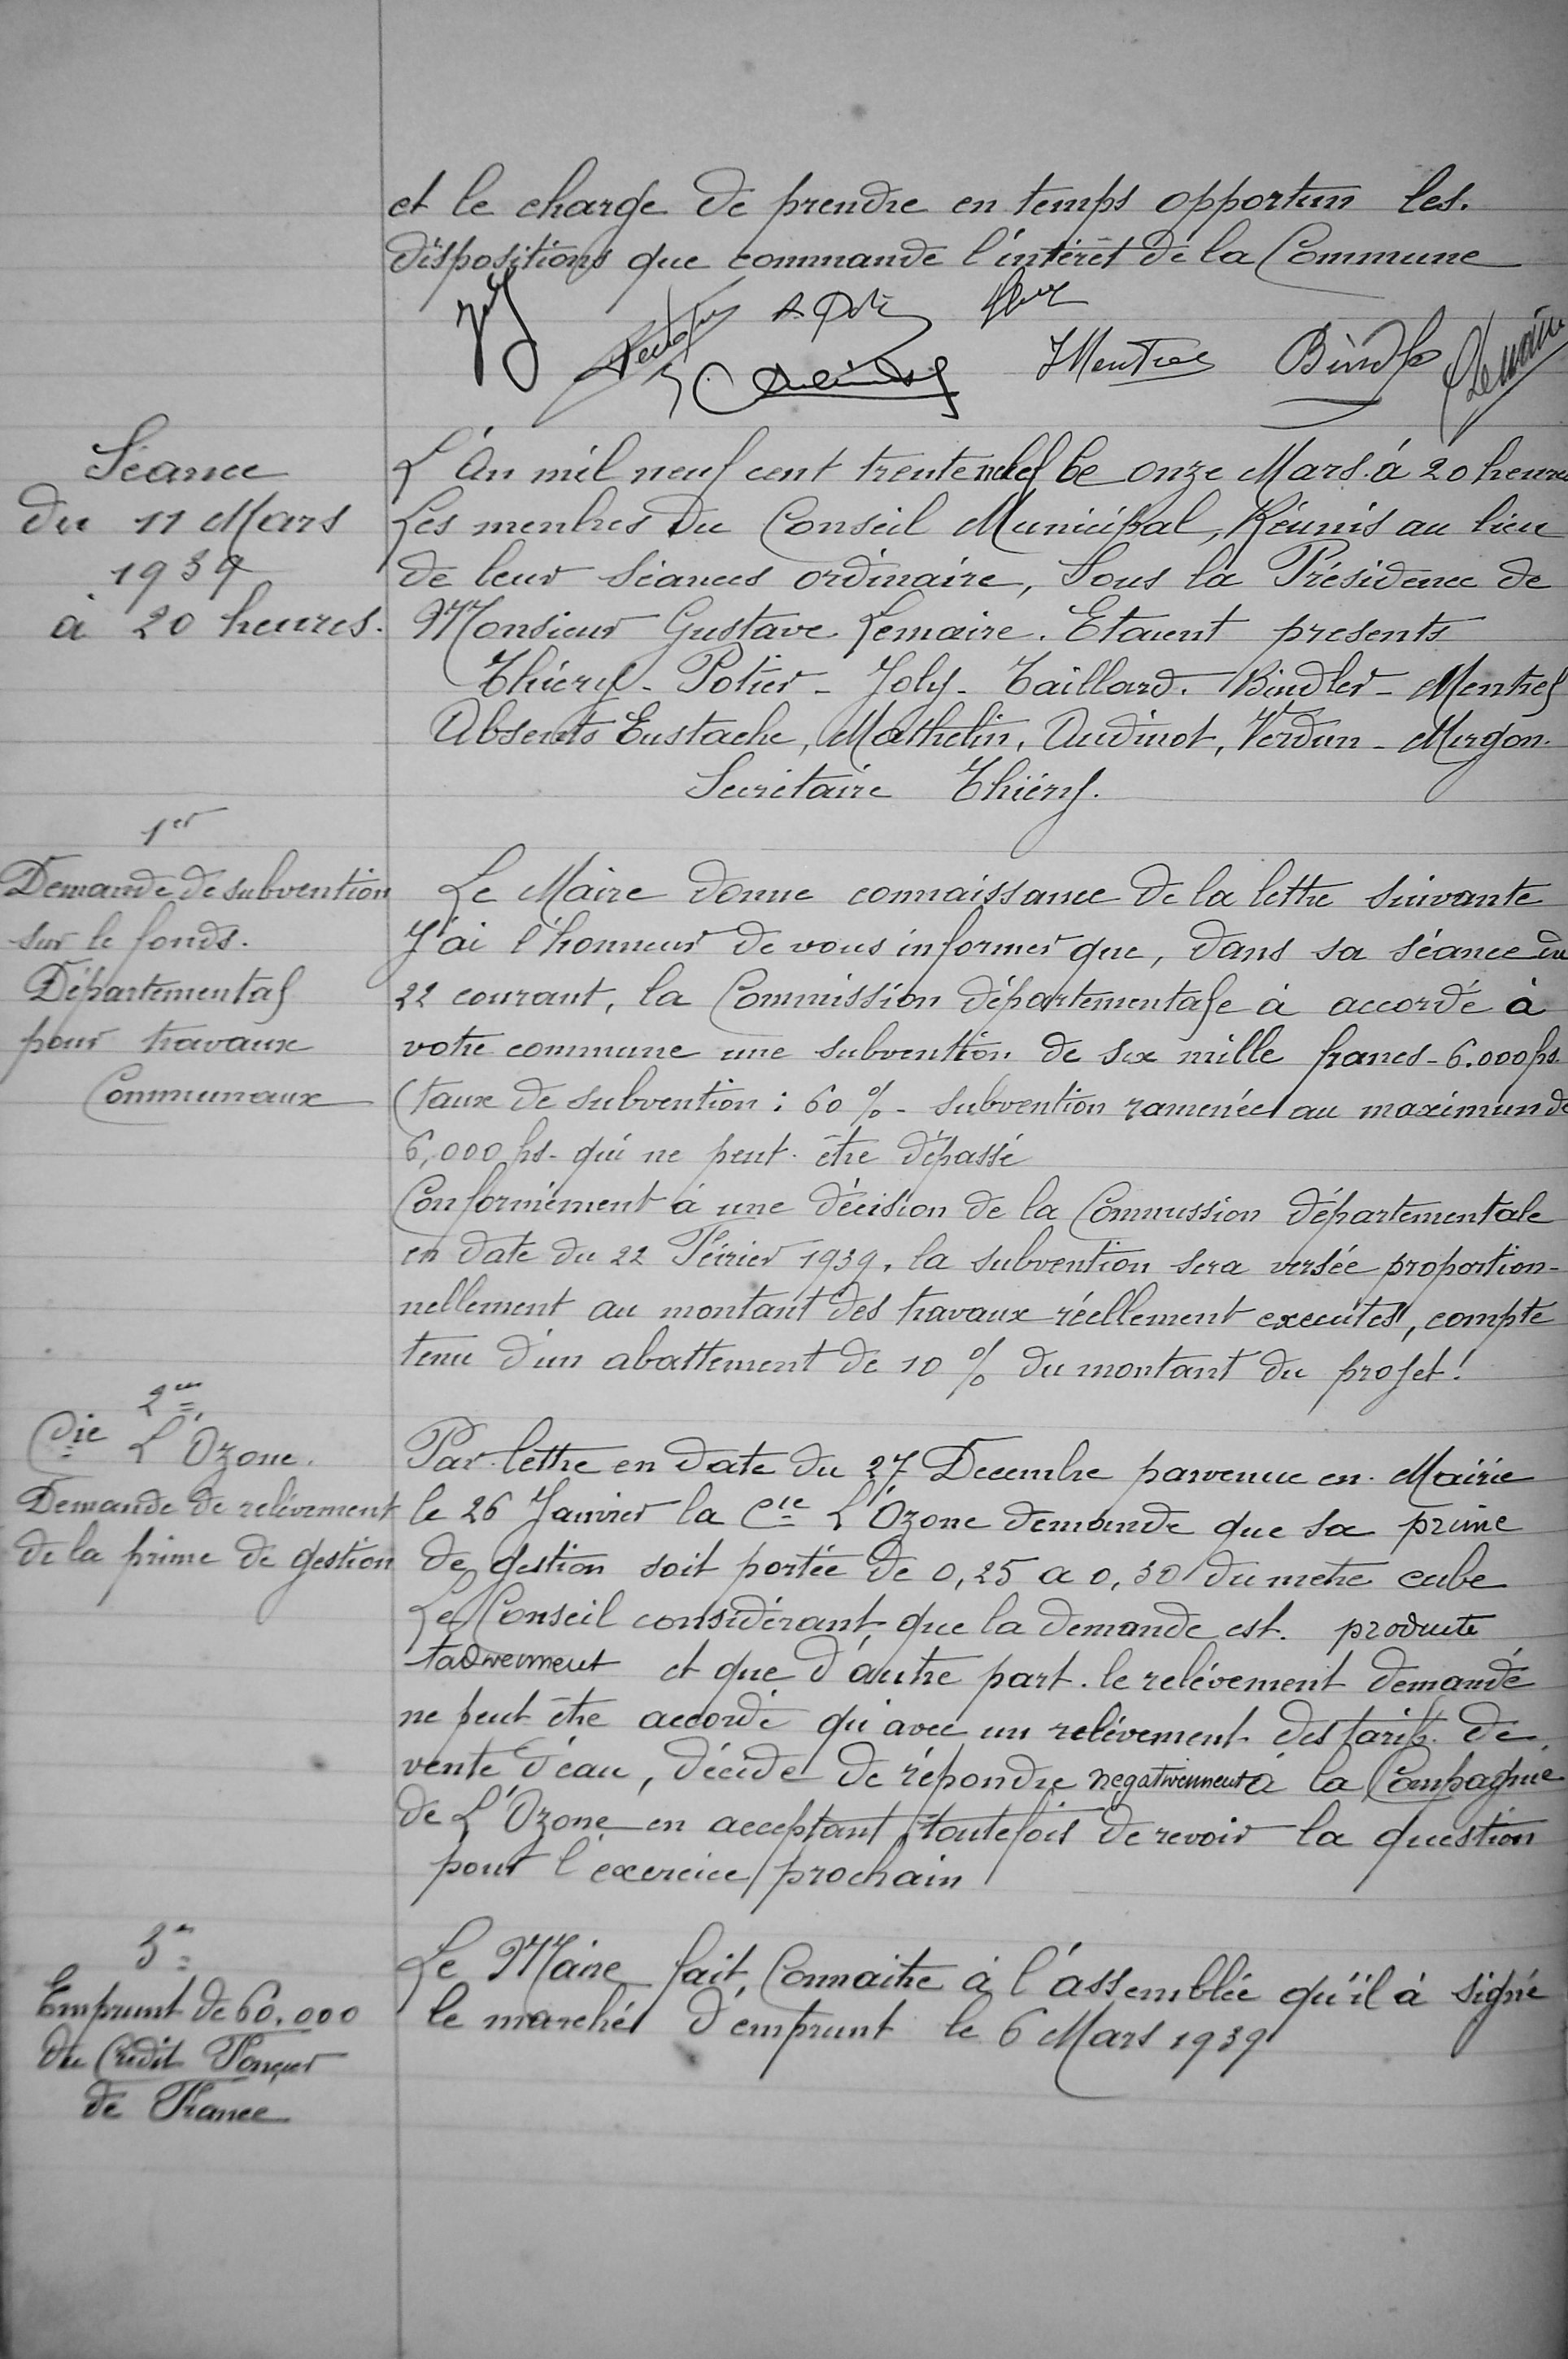 et le charge de prendre en temps opportun les.
dispositions que commande l'intérêt de la Commune
JMentre Bindle Lemaire
Séance
du 11 Mars
1939
à 20 heures.
L'An mil neuf cent trente neuf le onze Mars à 20 heures
Les menbres du Conseil Municipal, Réunis au lieu
de leur séances ordinaire, Sous la Présidence de
Monsieur Gustave Lemaire. Etaient presents
Thiéry - Potier - Joly - Taillard. Bindler - Mentref
Absents Eustache, Mathelin, Audinot, Verdun - Mugon.
Secrétaire Thiéry.
1er
Demande de subvention
sur le fonds.
Départemental
pour travaux
Communaux
Le Maire donne connaissance de la lettre suivante
J'ai l'honneur de vous informer que, dans sa séance du
22 courant, la Commission départementale à accordé à
votre commune une subvention de six mille francs - 6.000 frs.
(taux de subvention : 60 % - subvention ramenée au maximun de
6,000 frs - qui ne peut être dépassé
Conformément à une décision de la Commission départementale
en date du 22 Février 1939, la subvention sera versée proportion-
nellement au montant des travaux réellement executés, compte
tenu d'un abattement de 10 % du montant du projet!
2me
Cie L'Ozone.
Demande de relévement
de la prime de gestion
Par lettre en date du 27 Decembre parvenue en Mairie
le 26 Janvier la Cie L'Ozone demande que sa prime
de gestion soit portée de 0,25 a 0,30 du metre cube
Le Conseil considérant que la demande est. produite
tadivement et que d'autre part. le relévement demandé
ne peut être accordé qu'avec un relévement des tarifs de
vente d'eau, décide de répondre negativement à la Compagnie
de L'Ozone en acceptant toutefois de revoir la question
pour l'exercice prochain
3me
Emprunt de 60.000
du Crédit Foncier
de France
Le Maire fait Connaitre à l'assemblée qu'il à signé
le marché d'emprunt le 6 Mars 1939